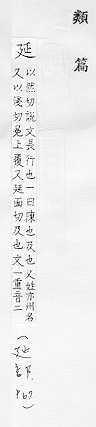 類篇
延
以然切說文長行也一曰陳也及也又姓亦州名
又以淺切冕上覆又延面切及也文一重音二
(延部 P.67)